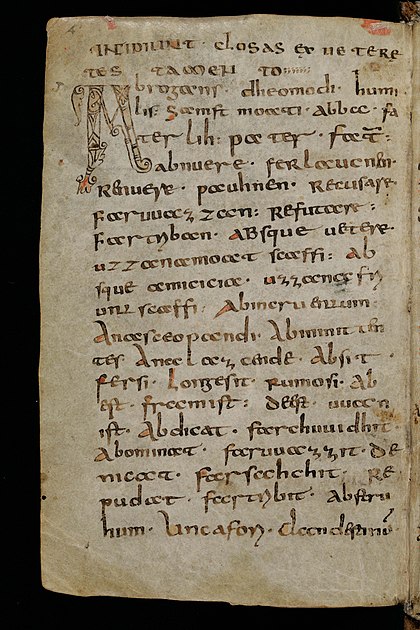 INCIPIUNT CLOSAS EX UETERE
TES TAMEN TO
Abrogans · dheomodi · humi
lis · samft moati · abbæ · fa
ter lih : pater · fat̄
abnuere · ferlaucnen ·
Renuere · pauhnen · Recusare
faruuazzan : Refutare :
fartriban · Absque uetere ·
uzzana moat scaffi · Ab
sque amicicia · uzzana fri
unt scaffi ·
Abminit
tes Ane laz cende · Absit ·
fersi · Longe sit · rumo si · Ab
est · fram ist : deest · uuan
ist · Abdicat · farchuuidhit ·
Abominat · faruuazzit · De
nicat · farsahchit · Re
pudat · fartribit · Abstru
hum · Uncafori · Clandestinū